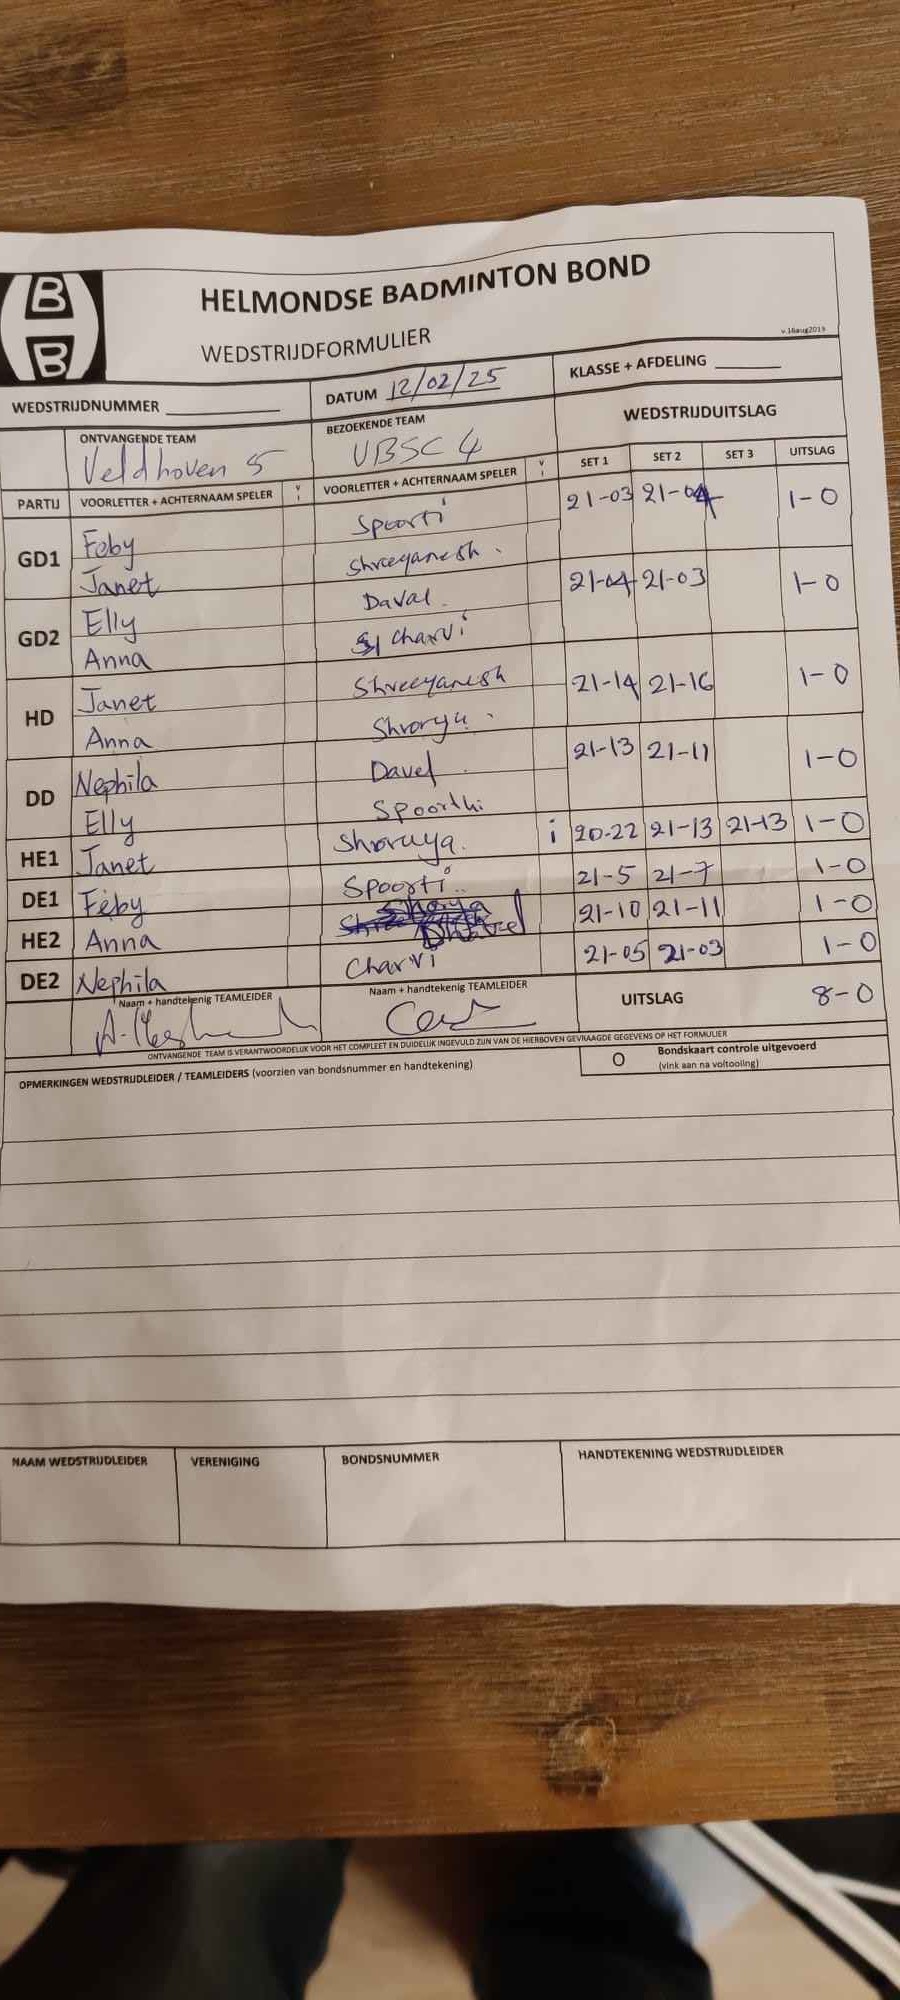 B
B
HELMONDSE BADMINTON BOND
WEDSTRIJDFORMULIER
v.16aug2019
WEDSTRIJDNUMMER
DATUM 12/02/25
KLASSE + AFDELING
ONTVANGENDE TEAM
Veldhoven 5
BEZOEKENDE TEAM
VBSC 4
WEDSTRIJDUITSLAG
PARTIJ VOORLETTER + ACHTERNAAM SPELER V I VOORLETTER + ACHTERNAAM SPELER V I SET 1 SET 2 SET 3 UITSLAG
GD1 Feby Spoorti 21-03 21-04 1-0
Janet Shreeyanesh.
GD2 Elly Daval. 21-04 21-03 1-0
Anna Charvi
HD Janet Shreeyanesh 21-14 21-16 1-0
Anna Shrorya.
DD Nephila Davel 21-13 21-11 1-0
Elly Spoorthi
HE1 Janet Shoruya. i 20-22 21-13 21-13 1-0
DE1 Feby Spoorti.. 21-5 21-7 1-0
HE2 Anna 21-10 21-11 1-0
DE2 Nephila Charvi 21-05 21-03 1-0
Naam + handtekenig TEAMLEIDER
Naam + handtekenig TEAMLEIDER
UITSLAG 8-0
ONTVANGENDE TEAM IS VERANTWOORDELIJK VOOR HET COMPLEET EN DUIDELIJK INGEVULD ZIJN VAN DE HIERBOVEN GEVRAAGDE GEGEVENS OP HET FORMULIER
OPMERKINGEN WEDSTRIJDLEIDER / TEAMLEIDERS (voorzien van bondsnummer en handtekening)
O Bondskaart controle uitgevoerd
(vink aan na voltooiing)
NAAM WEDSTRIJDLEIDER VERENIGING BONDSNUMMER HANDTEKENING WEDSTRIJDLEIDER